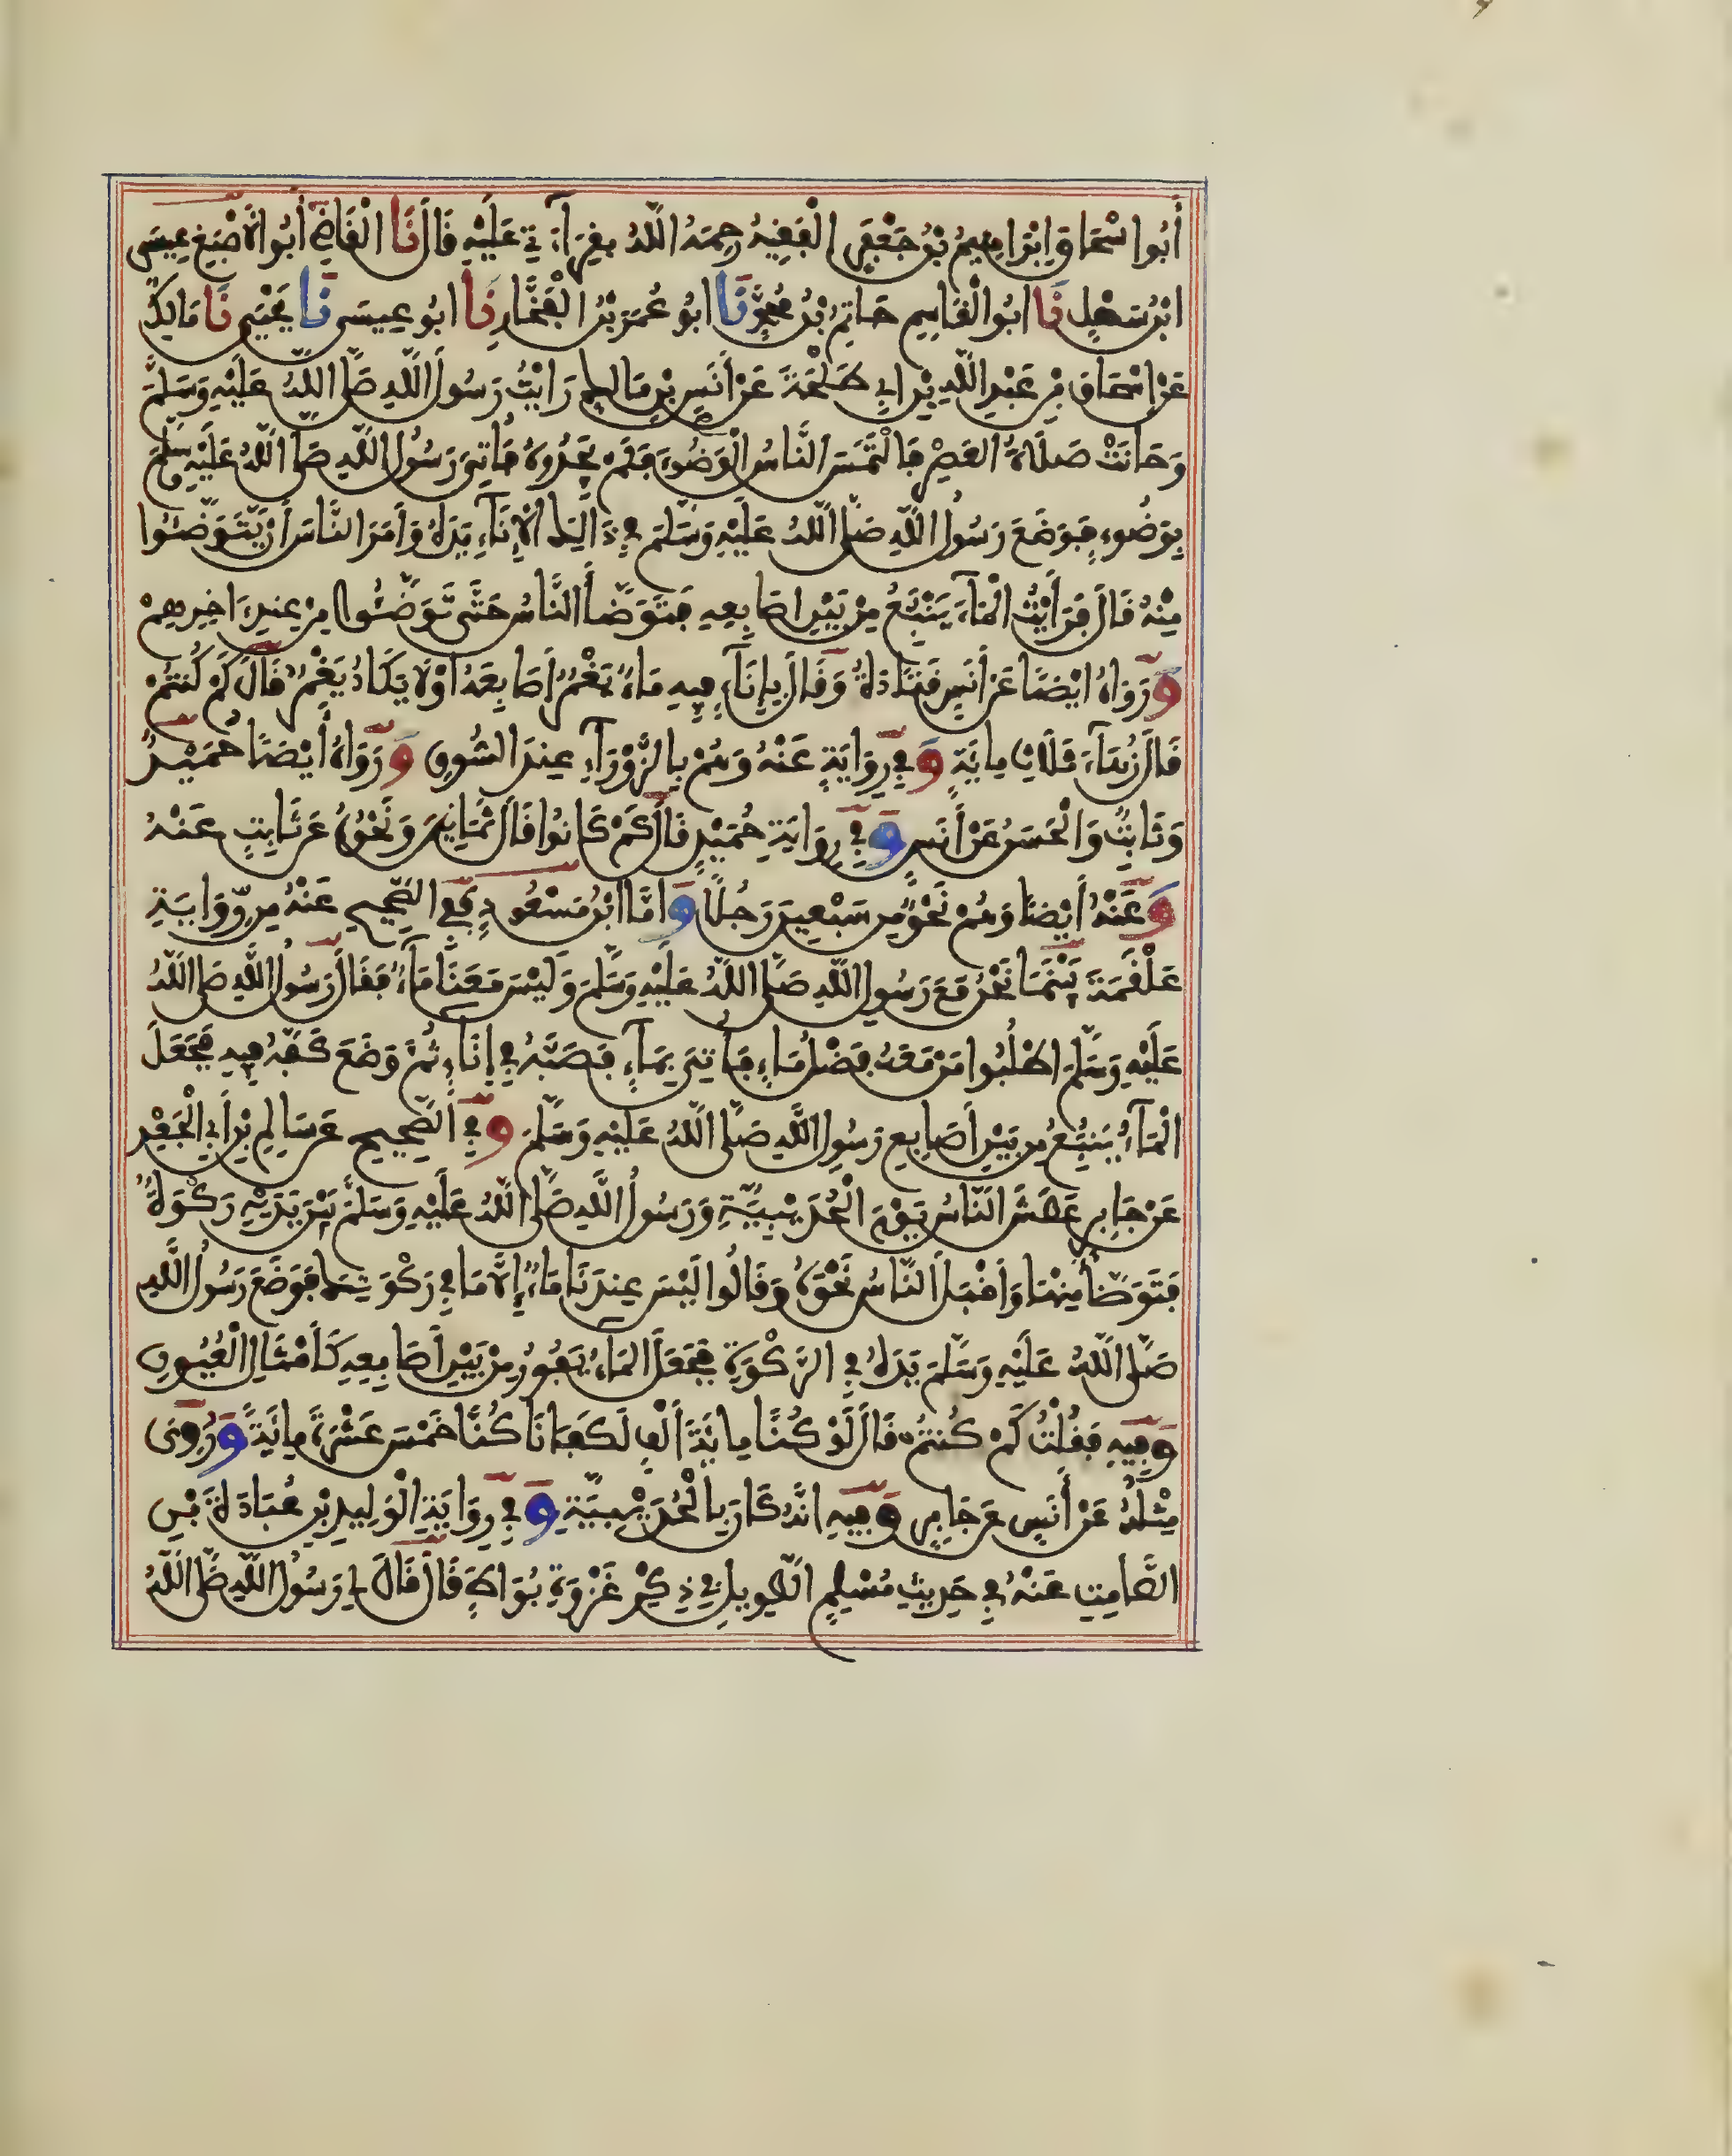 أَبُوا سْحَاقَ اِبْرَاهِيمُ بْنُ جَعْفَرٍ الْفَقِيهُ رَحِمَهُ اللَّهُ بِقِرَاءَتِي عَلَيْهِ قَالَ نَا الْقَاضِي أَبُوا لْأَصْبَغِ عِيسَى
ابْنُ سَهْلٍ نَا ابُوا لْقَاسِمِ حَاتِمُ بْنُ مُحَمَّدٍ نَا ابُو عُمَرَ بْنُ الْفَخَّارِ نَا ابُو عِيسَى نَا يَحْيَى نَا مَالِكٌ
عَنْ إِسْحَاقَ بْنِ عَبْدِ اللَّهِ بْنِ ابِي طَلْحَةَ عَنْ أَنَسِ بْنِ مَالِكٍ رَايْتُ رَسُولَ اللَّهِ صَلَّى اللَّهُ عَلَيْهِ وَسَلَّمَ
وَحَانَتْ صَلَاةُ العَصْرِ فَالْتَمَسَ النَّاسُ الْوَضُوءَ فَلَمْ يَجِدُوهُ فَأُتِيَ رَسُولُ اللَّهِ صَلَّى اللَّهُ عَلَيْهِ وَسَلَّمَ
بِوَضُوءٍ فَوَضَعَ رَسُولُ اللَّهِ صَلَّى اللَّهُ عَلَيْهِ وَسَلَّمَ فِي ذَالِكَ الْإِنَآءِ يَدَهُ وَأَمَرَ النَّاسَ أَنْ يَّتَوَضَّئُوا
مِنْهُ قَالَ فَرَأَيْتُ الْمَآءَ يَنْبُعُ مِنْ بَيْنِ اصَابِعِهِ فَتَوَضَّأَ النَّاسُ حَتَّى تَوَضَّئُوا مِنْ عِندِ ءَاخِرِهِمْ
وَرَوَاهُ ايْضًا عَنْ أَنَسٍ قَتَادَةُ وَقَالَ بِإِنَآءٍ فِيهِ مَاءٌ يَغْمُرُ أَصَابِعَهُ أَوْ لَا يَكَادُ يَغْمُرُ قَالَ كَمْ كُنتُمْ
قَالَ زُهَآءَ ثَلَاثِ مِايَةٍ وَفِي رِوَايَةٍ عَنْهُ وَهُمْ بِالزَّوْرَآءِ عِندَ السُّوقِ وَرَوَاهُ أَيْضًا حُمَيْدٌ
وَثَابِتٌ وَالْحَسَنُ عَنْ أَنَسٍ وَفِي رِوَايَةِ حُمَيْدٍ قَالَ كَمْ كَانُوا قَالَ ثَمَانِينَ وَنَحْوُهُ عَنْ ثَابِتٍ عَنْهُ
وَعَنْهُ أَيْضًا وَهُمْ نَحْوٌ مِّن سَبْعِينَ رَجُلًا وَامَّا ابْنُ مَسْعُودٍ فَفِي الصَّحِيحِ عَنْهُ مِن رِّوَايَةِ
عَلْقَمَةَ بَيْنَمَا نَحْنُ مَعَ رَسُولِ اللَّهِ صَلَّى اللَّهُ عَلَيْهِ وَسَلَّمَ وَلَيْسَ مَعَنَا مَآءٌ فَقَالَ رَسُولُ اللَّهِ صَلَّى اللَّهُ
عَلَيْهِ وَسَلَّمَ اطْلُبُوا مَنْ مَعَهُ فَضْلُ مَاءٍ فَأُتِيَ بِمَآءٍ فَصَبَّهُ فِي إِنَآءٍ ثُمَّ وَضَعَ كَفَّهُ فِيهِ فَجَعَلَ
الْمَآءُ يَنبُعُ مِن بَيْنِ أَصَابِعِ رَسُولِ اللَّهِ صَلَّى اللَّهُ عَلَيْهِ وَسَلَّمَ وَفِي الصَّحِيحِ عَن سَالِمِ بْنِ أَبِي الْجَعْدِ
عَنْ جَابِرٍ عَطِشَ النَّاسُ يَوْمَ الْحُدَيْبِيَّةِ وَرَسُولُ اللَّهِ صَلَّى اللَّهُ عَلَيْهِ وَسَلَّمَ بَيْنَ يَدَيْهِ رَكْوَةٌ
فَتَوَضَّأَ مِنْهَا وَأَقْبَلَ النَّاسُ نَحْوَهُ وَقَالُوا لَيْسَ عِندَنَا مَاءٌ إِلَّا مَا فِي رَكْوَتِكَ فَوَضَعَ رَسُولُ اللَّهِ
صَلَّى اللَّهُ عَلَيْهِ وَسَلَّمَ يَدَهُ فِي الرَّكْوَةِ فَجَعَلَ الْمَاءُ يَفُورُ مِنْ بَيْنِ أَصَابِعِهِ كَأَمْثَالِ الْعُيُونِ
وَفِيهِ فَقُلْتُ كَمْ كُنتُمْ قَالَ لَوْ كُنَّا مِائَةَ أَلْفٍ لَكَفَانَا كُنَّا خَمْسَ عَشْرَةَ مِائَةً وَرُوِيَ
مِثْلُهُ عَنْ أَنَسٍ عَن جَابِرٍ وَفِيهِ انَّهُ كَانَ بِالْحُدَيْبِيَّةِ وَفِي رِوَايَةِ الْوَلِيدِ بْنِ عُبَادَةَ بْنِ
الصَّامِتِ عَنْهُ فِي حَدِيثِ مُسْلِمٍ الطَّوِيلِ فِي ذِكْرِ غَزْوَةِ بُوَاطٍ قَالَ قَالَ لِي رَسُولُ اللَّهِ صَلَّى اللَّهُ